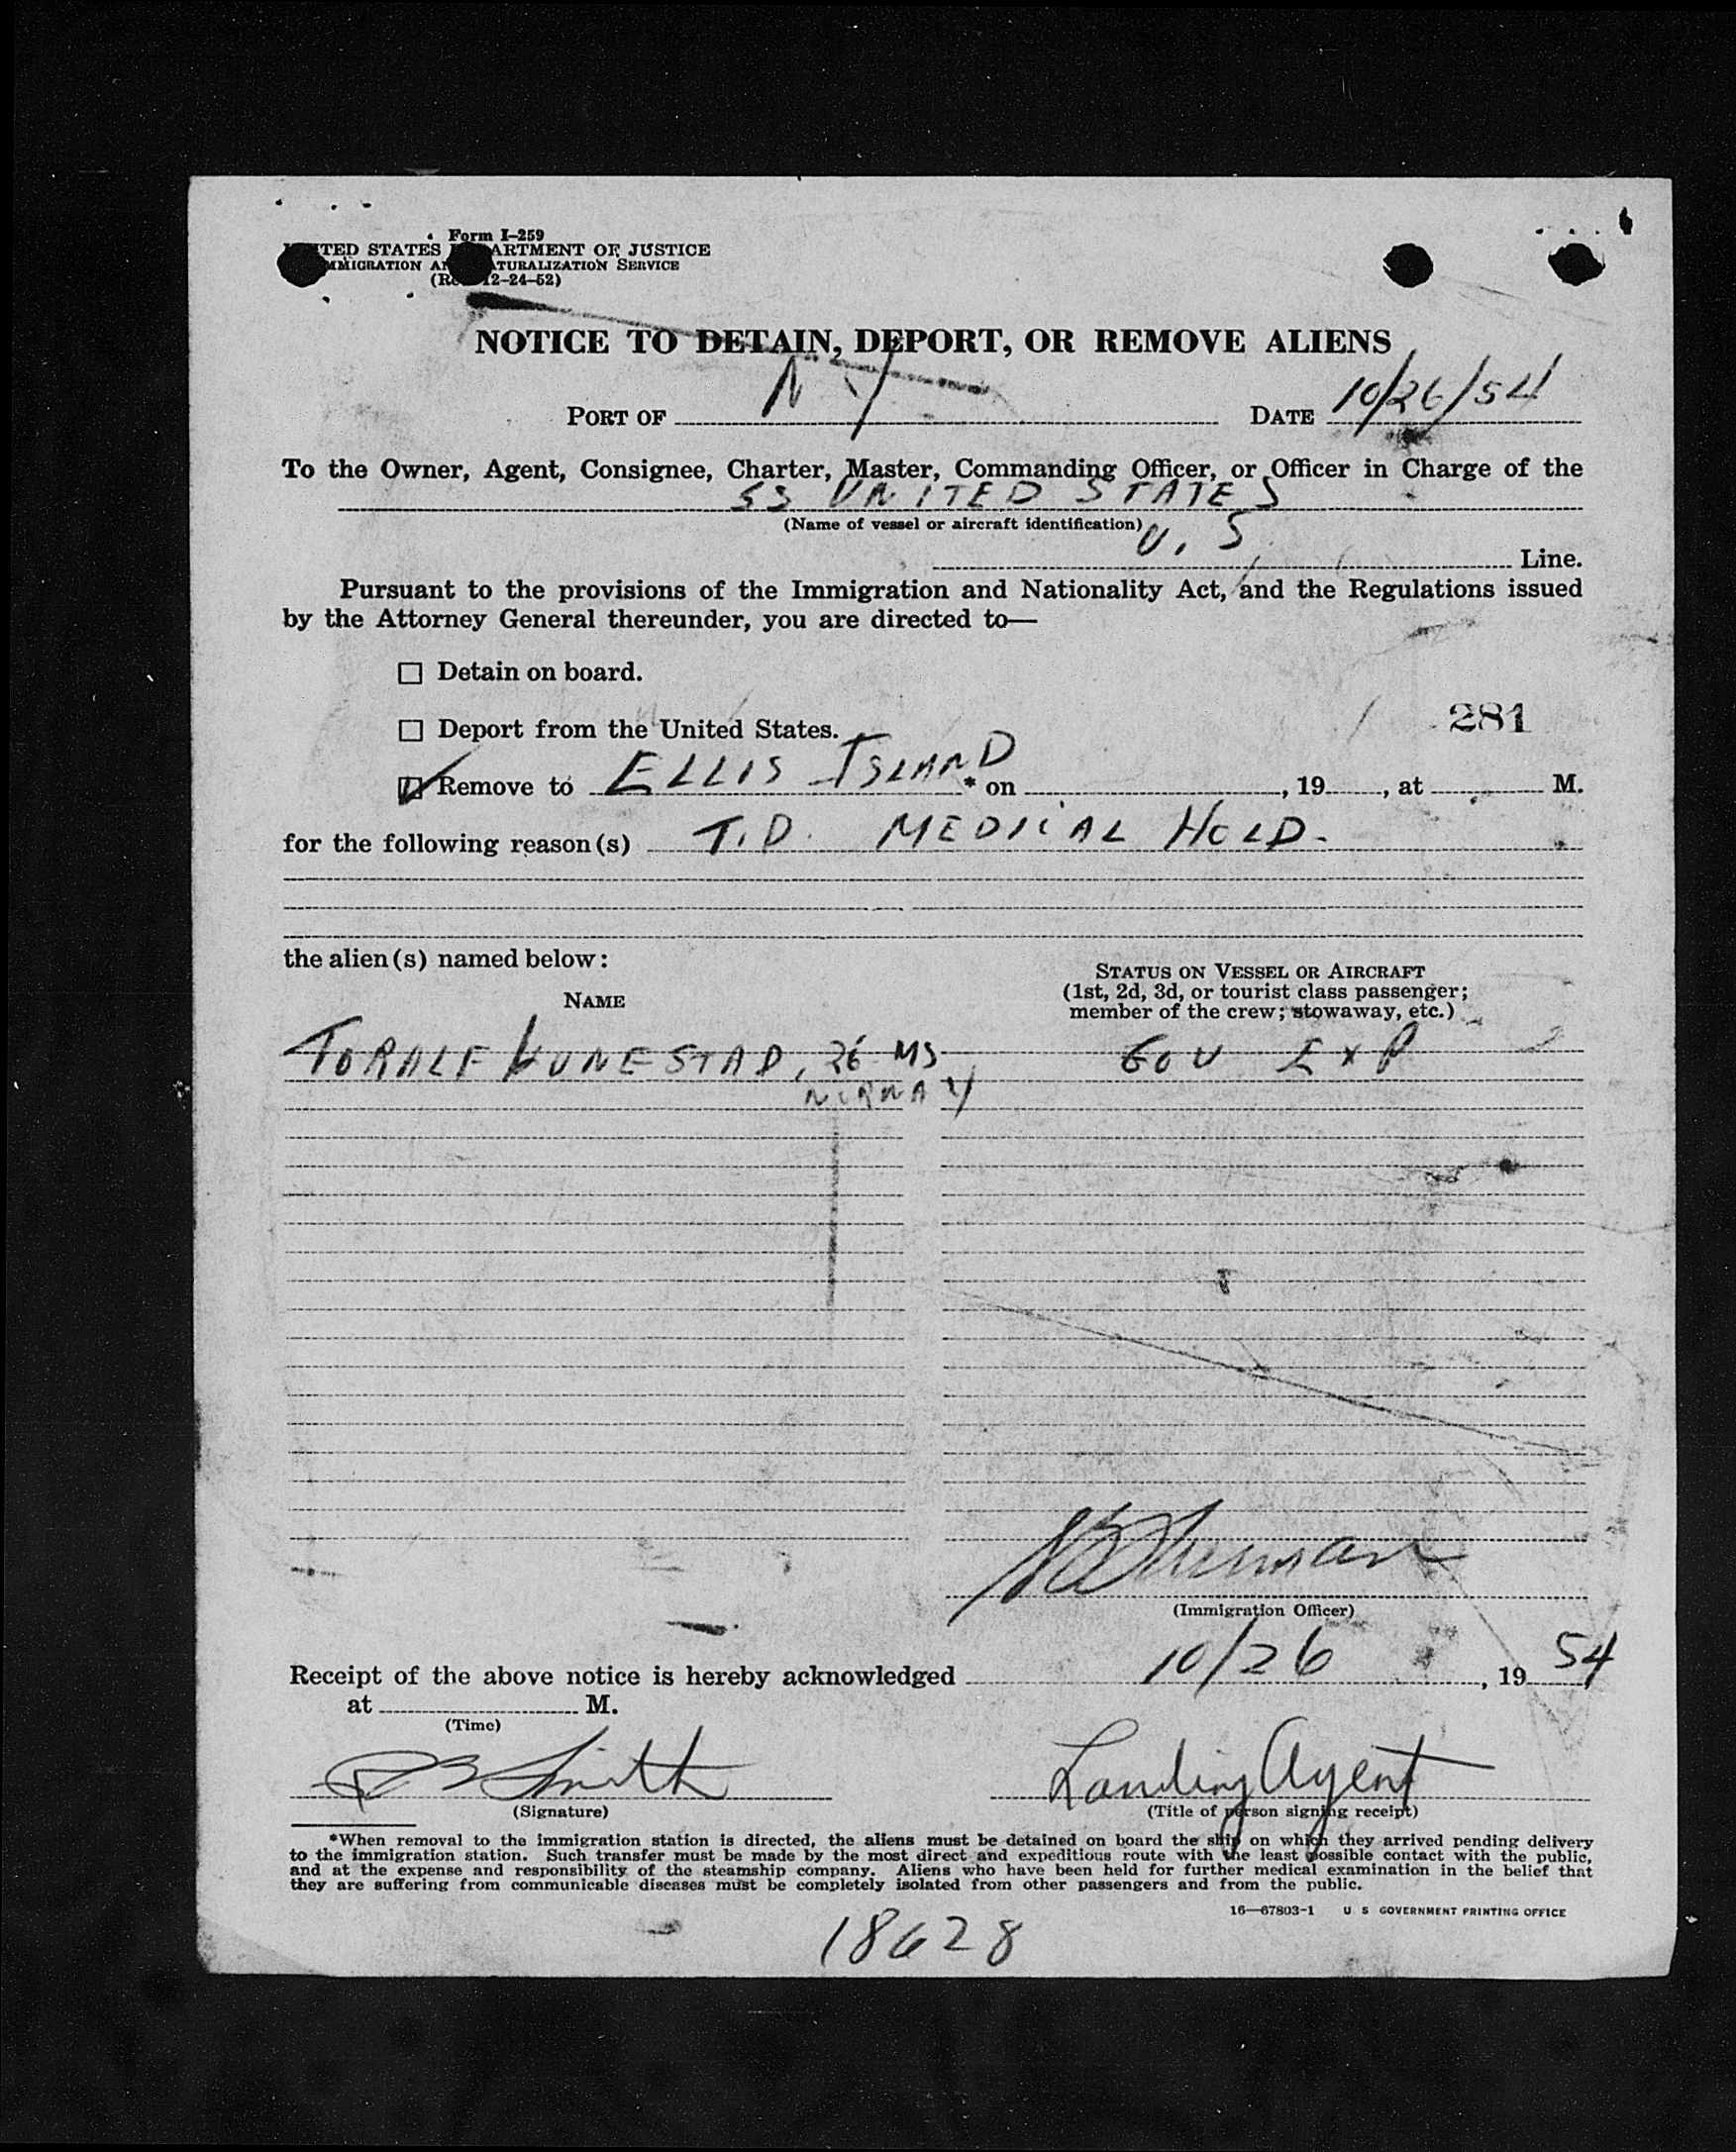 Form I-259
UNITED STATES DEPARTMENT OF JUSTICE
IMMIGRATION AND NATURALIZATION SERVICE
(Rev. 12-24-52)
NOTICE TO DETAIN, DEPORT, OR REMOVE ALIENS
PORT OF N Y DATE 10/26/54
To the Owner, Agent, Consignee, Charter, Master, Commanding Officer, or Officer in Charge of the
SS UNITED STATES
(Name of vessel or aircraft identification)
U. S. Line.
Pursuant to the provisions of the Immigration and Nationality Act, and the Regulations issued
by the Attorney General thereunder, you are directed to—
Detain on board.
Deport from the United States. 281
Remove to ELLIS ISLAND * on , 19 , at M.
for the following reason(s) T.D. MEDICAL HOLD.
the alien(s) named below:
STATUS ON VESSEL OR AIRCRAFT
(1st, 2d, 3d, or tourist class passenger;
member of the crew; stowaway, etc.)
NAME
TORALF 26 MS GOV EXP
NORWAY
(Immigration Officer)
Receipt of the above notice is hereby acknowledged 10/26, 19 54
at M.
(Time)
Smith Landing Agent
(Signature) (Title of person signing receipt)
*When removal to the immigration station is directed, the aliens must be detained on board the ship on which they arrived pending delivery
to the immigration station. Such transfer must be made by the most direct and expeditious route with the least possible contact with the public,
and at the expense and responsibility of the steamship company. Aliens who have been held for further medical examination in the belief that
they are suffering from communicable diseases must be completely isolated from other passengers and from the public.
16—67803-1 U S GOVERNMENT PRINTING OFFICE
18628